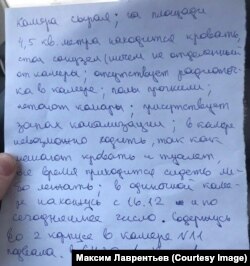 камера сырая; на площади
4,5 кв. метра находится кровать,
стол, санузел (ничем не отделенный
от камеры; отсутствует радиоточ-
ка в камере; полы прогнили;
летают комары; присутствует
запах канализации; в камере
невозможно ходить, так как
мешают кровать и туалет,
все время приходится сидеть ли-
бо лежать; в одиночной каме-
ре нахожусь с 16.12 и по
сегодняшнее число. Содержусь
во 2 корпусе в камере №11
подвала.
Максим Лаврентьев (Courtesy Image)